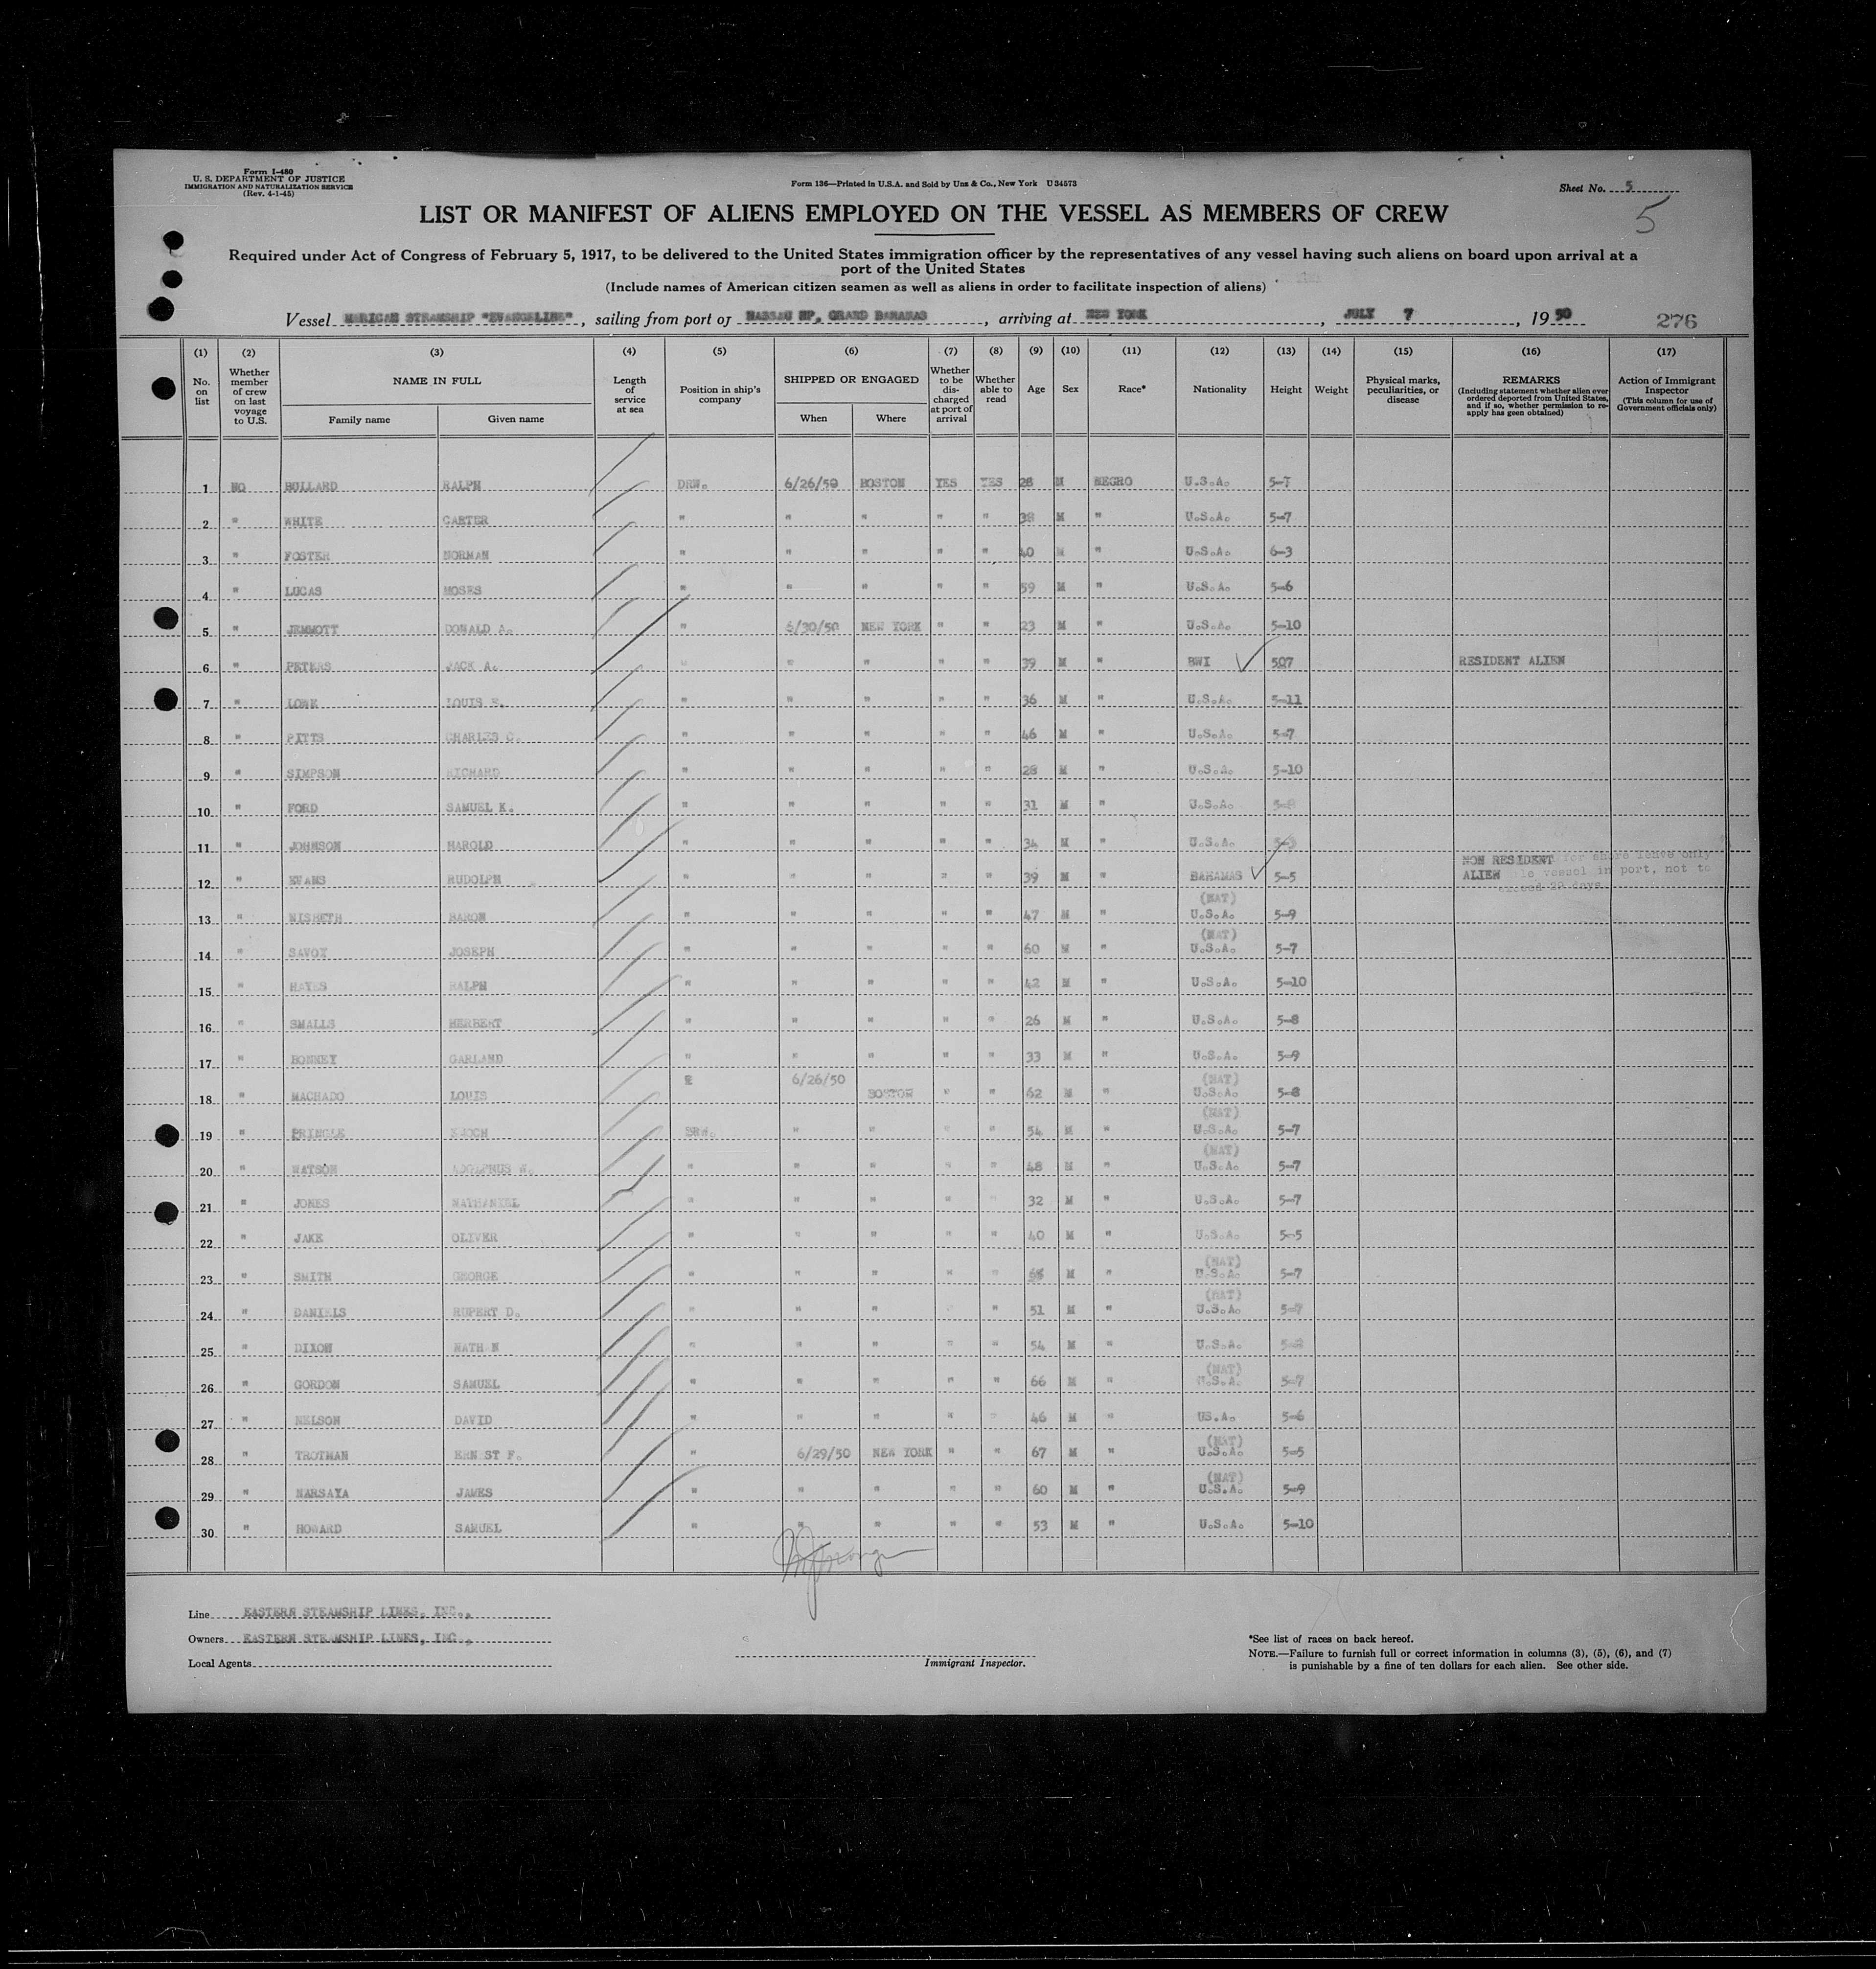 Form I-480
U. S. DEPARTMENT OF JUSTICE
IMMIGRATION AND NATURALIZATION SERVICE
(Rev. 4-1-45)
Form 136—Printed in U.S.A. and Sold by Unz & Co., New York U 34573
Sheet No. 5
5
LIST OR MANIFEST OF ALIENS EMPLOYED ON THE VESSEL AS MEMBERS OF CREW
Required under Act of Congress of February 5, 1917, to be delivered to the United States immigration officer by the representatives of any vessel having such aliens on board upon arrival at a
port of the United States
(Include names of American citizen seamen as well as aliens in order to facilitate inspection of aliens)
Vessel MERICAN STEAMSHIP "EVANGELINE", sailing from port of NASSAU NP, GRAND BAHAMAS, arriving at NEW YORK, JULY 7, 1950 276
(1) (2) (3) (4) (5) (6) (7) (8) (9) (10) (11) (12) (13) (14) (15) (16) (17)
No. on list | Whether member of crew on last voyage to U.S. | NAME IN FULL | Family name | Given name | Length of service at sea | Position in ship's company | SHIPPED OR ENGAGED | When | Where | Whether to be discharged at port of arrival | Whether able to read | Age | Sex | Race* | Nationality | Height | Weight | Physical marks, peculiarities, or disease | REMARKS (Including statement whether alien ever ordered deported from United States, and if so, whether permission to re-apply has geen obtained) | Action of Immigrant Inspector (This column for use of Government officials only)
1 NO BULLARD RALPH DRW. 6/26/50 BOSTON YES YES 28 M NEGRO U.S.A. 5-7
2 " WHITE CARTER " " " " " 38 M " U.S.A. 5-7
3 " FOSTER NORMAN " " " " " 40 M " U.S.A. 6-3
4 " LUCAS MOSES " " " " " 59 M " U.S.A. 5-6
5 " JEMMOTT DONALD A. " 6/30/50 NEW YORK " " 23 M " U.S.A. 5-10
6 " PETERS JACK A. " " " " " 39 M " BWI 507 RESIDENT ALIEN
7 " LOWE LOUIS " " " " " 36 M " U.S.A. 5-11
8 " PITTS CHARLES C. " " " " " 46 M " U.S.A. 5-7
9 " SIMPSON RICHARD " " " " " 28 M " U.S.A. 5-10
10 " FORD SAMUEL K. " " " " " 31 M " U.S.A. 5-8
11 " JOHNSON HAROLD " " " " " 34 M " U.S.A.
12 " EVANS RUDOLPH " " " " " 39 M " BAHAMAS 5-5 NON RESIDENT ALIEN for shore leave only
vessel in port, not to
exceed 29 days
13 " NISBETH BARON " " " " " 47 M " (NAT) U.S.A. 5-9
14 " SAVOY JOSEPH " " " " " 60 M " (NAT) U.S.A. 5-7
15 " HAYES RALPH " " " " " 42 M " U.S.A. 5-10
16 " SMALLS HERBERT " " " " " 26 M " U.S.A. 5-8
17 " BONNEY GARLAND " " " " " 33 M " U.S.A. 5-9
18 " MACHADO LOUIS " 6/26/50 BOSTON " " 62 M " (NAT) U.S.A. 5-8
19 " PRINGLE ENOCH " " " " 54 M " (NAT) U.S.A. 5-7
20 " WATSON ADOLPHUS W. " " " " " 48 M " (NAT) U.S.A. 5-7
21 " JONES NATHANIEL " " " " " 32 M " U.S.A. 5-7
22 " JAKE OLIVER " " " " " 40 M " U.S.A. 5-5
23 " SMITH GEORGE " " " " " M " (NAT) U.S.A. 5-7
24 " DANIELS RUPERT D. " " " " " 51 M " (NAT) U.S.A. 5-7
25 " DIXON NATH N " " " " " 54 M " U.S.A. 5-8
26 " GORDON SAMUEL " " " " " 66 M " (NAT) U.S.A. 5-7
27 " NELSON DAVID " " " " " 46 M " US.A. 5-6
28 " TROTMAN ERN ST F. " 6/29/50 NEW YORK " " 67 M " (NAT) U.S.A. 5-5
29 " NARSAYA JAMES " " " " " 60 M " (NAT) U.S.A. 5-9
30 " HOWARD SAMUEL " " " " " 53 M " U.S.A. 5-10
Line EASTERN STEAMSHIP LINES, INC.,
Owners EASTERN STEAMSHIP LINES, INC.,
Local Agents
Immigrant Inspector.
*See list of races on back hereof.
NOTE.—Failure to furnish full or correct information in columns (3), (5), (6), and (7)
is punishable by a fine of ten dollars for each alien. See other side.